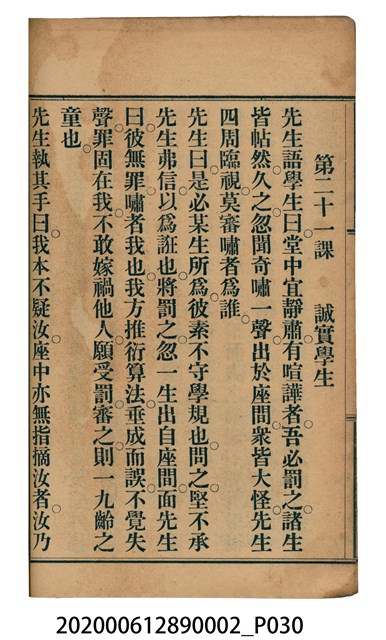 第二十一課　誠實學生
先生語學生曰。堂中宜靜肅。有喧譁者。吾必罰之。諸生
皆帖然。久之。忽聞奇嘯一聲。出於座間。衆皆大怪。先生
四周臨視。莫審嘯者爲誰。
先生曰。是必某生所爲。彼素不守學規也。問之。堅不承。
先生弗信。以爲誑也。將罰之。忽一生出自座間。面先生
曰。彼無罪。嘯者我也。我方推衍算法。垂成而誤。不覺失
聲。罪固在我。不敢嫁禍他人。願受罰。審之。則一九齡之
童也。
先生執其手曰。我本不疑汝。座中亦無指摘汝者。汝乃
202000612890002_P030